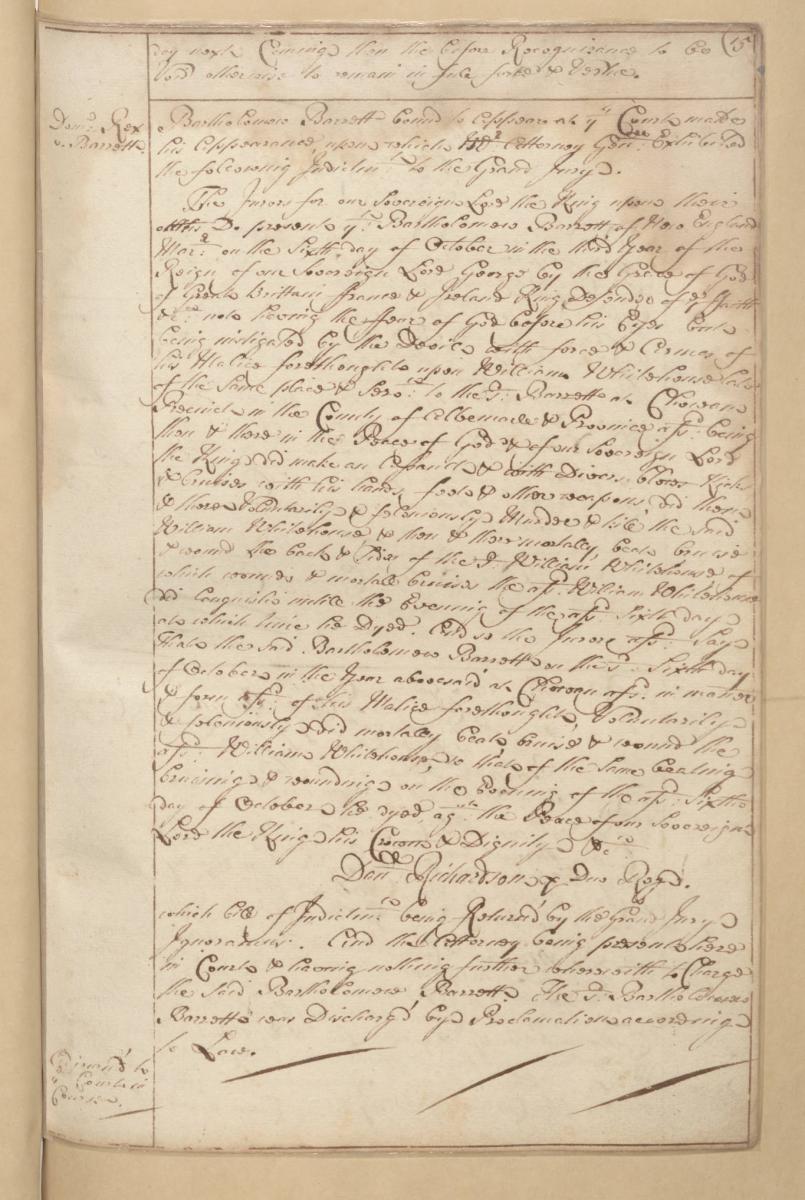 15
day next Coming then the before Recognizance to be
Void otherwise to remain in full force & Vertue.
Doms. Rex
v. Barrett.
Bartholomew Barrett bound to Appear at ys Court made
his Appearance, upon which Attorney Genll. Exhibited
the following Indictmt. to the Grand Jury.
The Jurors for our Sovereign Lord the King upon their
oaths Do present yt. Bartholomew Barrett of New England
Marr. on the Sixth day of October in the third Year of the
Reign of our Sovereign Lord George by the Grace of God
of Great Brittain ffrance & Ireland King Defender of ye ffaith
&c. not having the ffear of God before his Eyes but
being instigated by the Devil with force & Armes of
his Malice forethought upon William Whitehouse late
of the same place & Servt. to the sd. Barrett at Chowan
Precinct in the County of Albemarle & Province afsd. being
then & there in the Peace of God & of our Sovereign Lord
the King did make an Assault & with Divers blows Kicks
& bruises with his hands, foot & other weapons did then
& there Voluntarily & feloniously Murder & kill the said
William Whitehouse & then & there mortally, beat bruise
& wound the back & sides of the sd. William Whitehouse of
which wounds & mortall bruises the afsd. William Whitehouse
did languish untill the Evening of the afsd. Sixth day
at which time he Dyed. And so the Jurors afsd. Say
that the said Bartholomew Barrett on the sd. Sixth day
of October in the Year abovesaid at Chowan afsd. in manner
& form afsd. of his Malice forethought, Voluntarily
& feloniously did mortally beat bruise & wound the
afsd. William Whitehouse so that of the same beating
bruising & wounding on the Evening of the afsd. Sixth
day of October he dyed, agst. the Peace of our Sovereign
Lord the King his Crown & Dignity &c.
Danll. Richardson p Dno Rege.
which bill of Indictmt. being Return'd by the Grand Jury
Ignoramus. And the Attorney being present here
in Court & having nothing further wherewith to Charge
the said Bartholomew Barrett The sd. Bartholomew
Barrett was Discharg'd by Proclamation according
to Law.
to
Court in